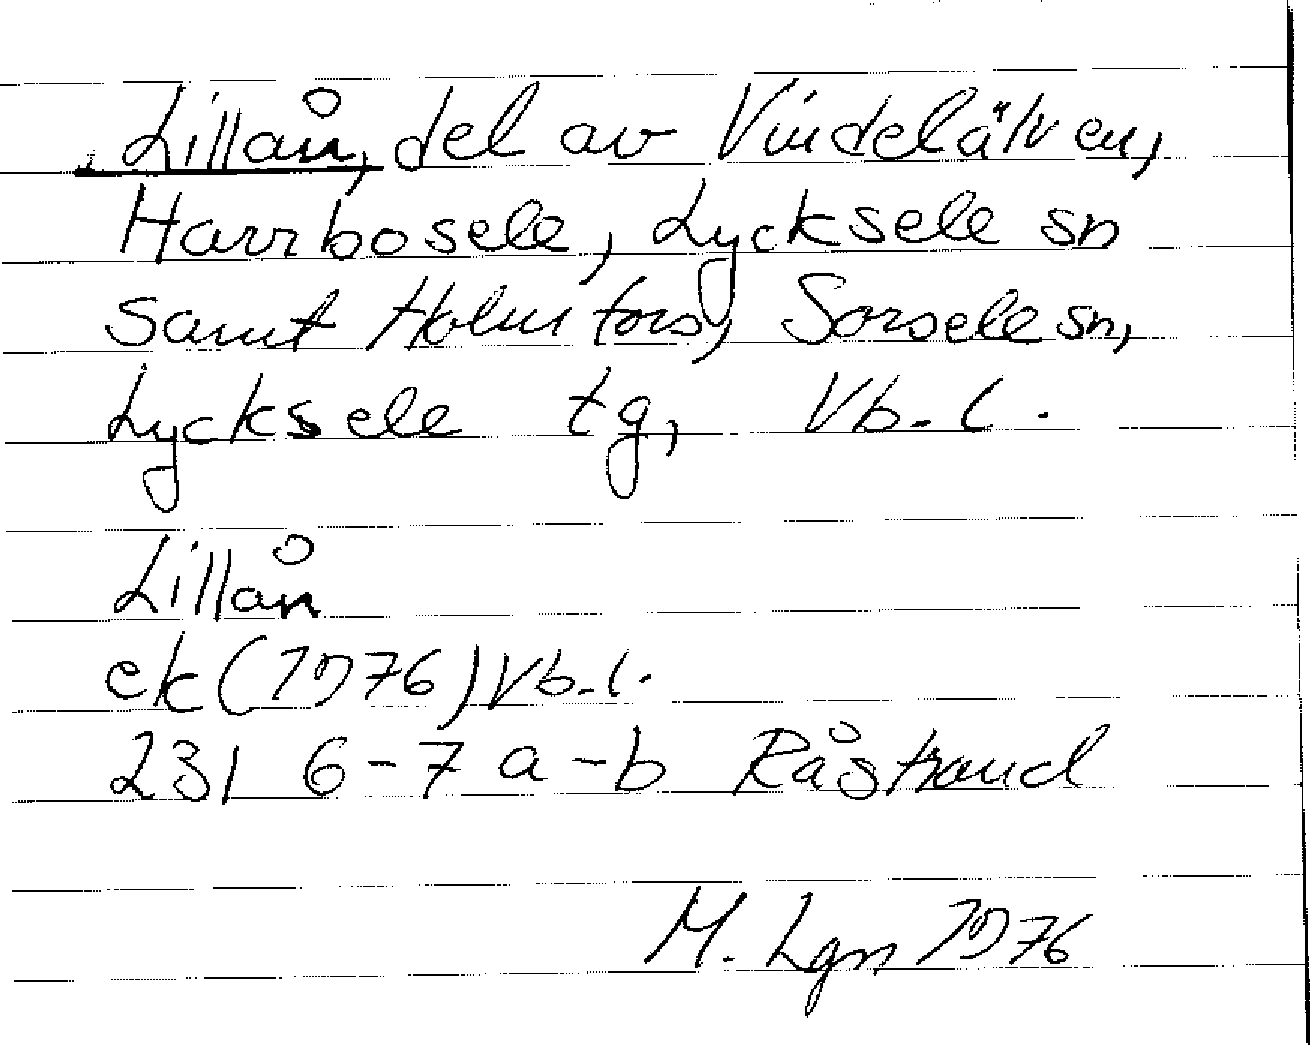 Lillån, del av Vindelälven,
Harrbosele, Lycksele sn
samt Holmfors, Sorsele sn,
Lycksele tg, Vb. l.
Lillån
ek (1976) Vb. l.
23I 6-7 a-b Råstrand
M. Lgn 1976